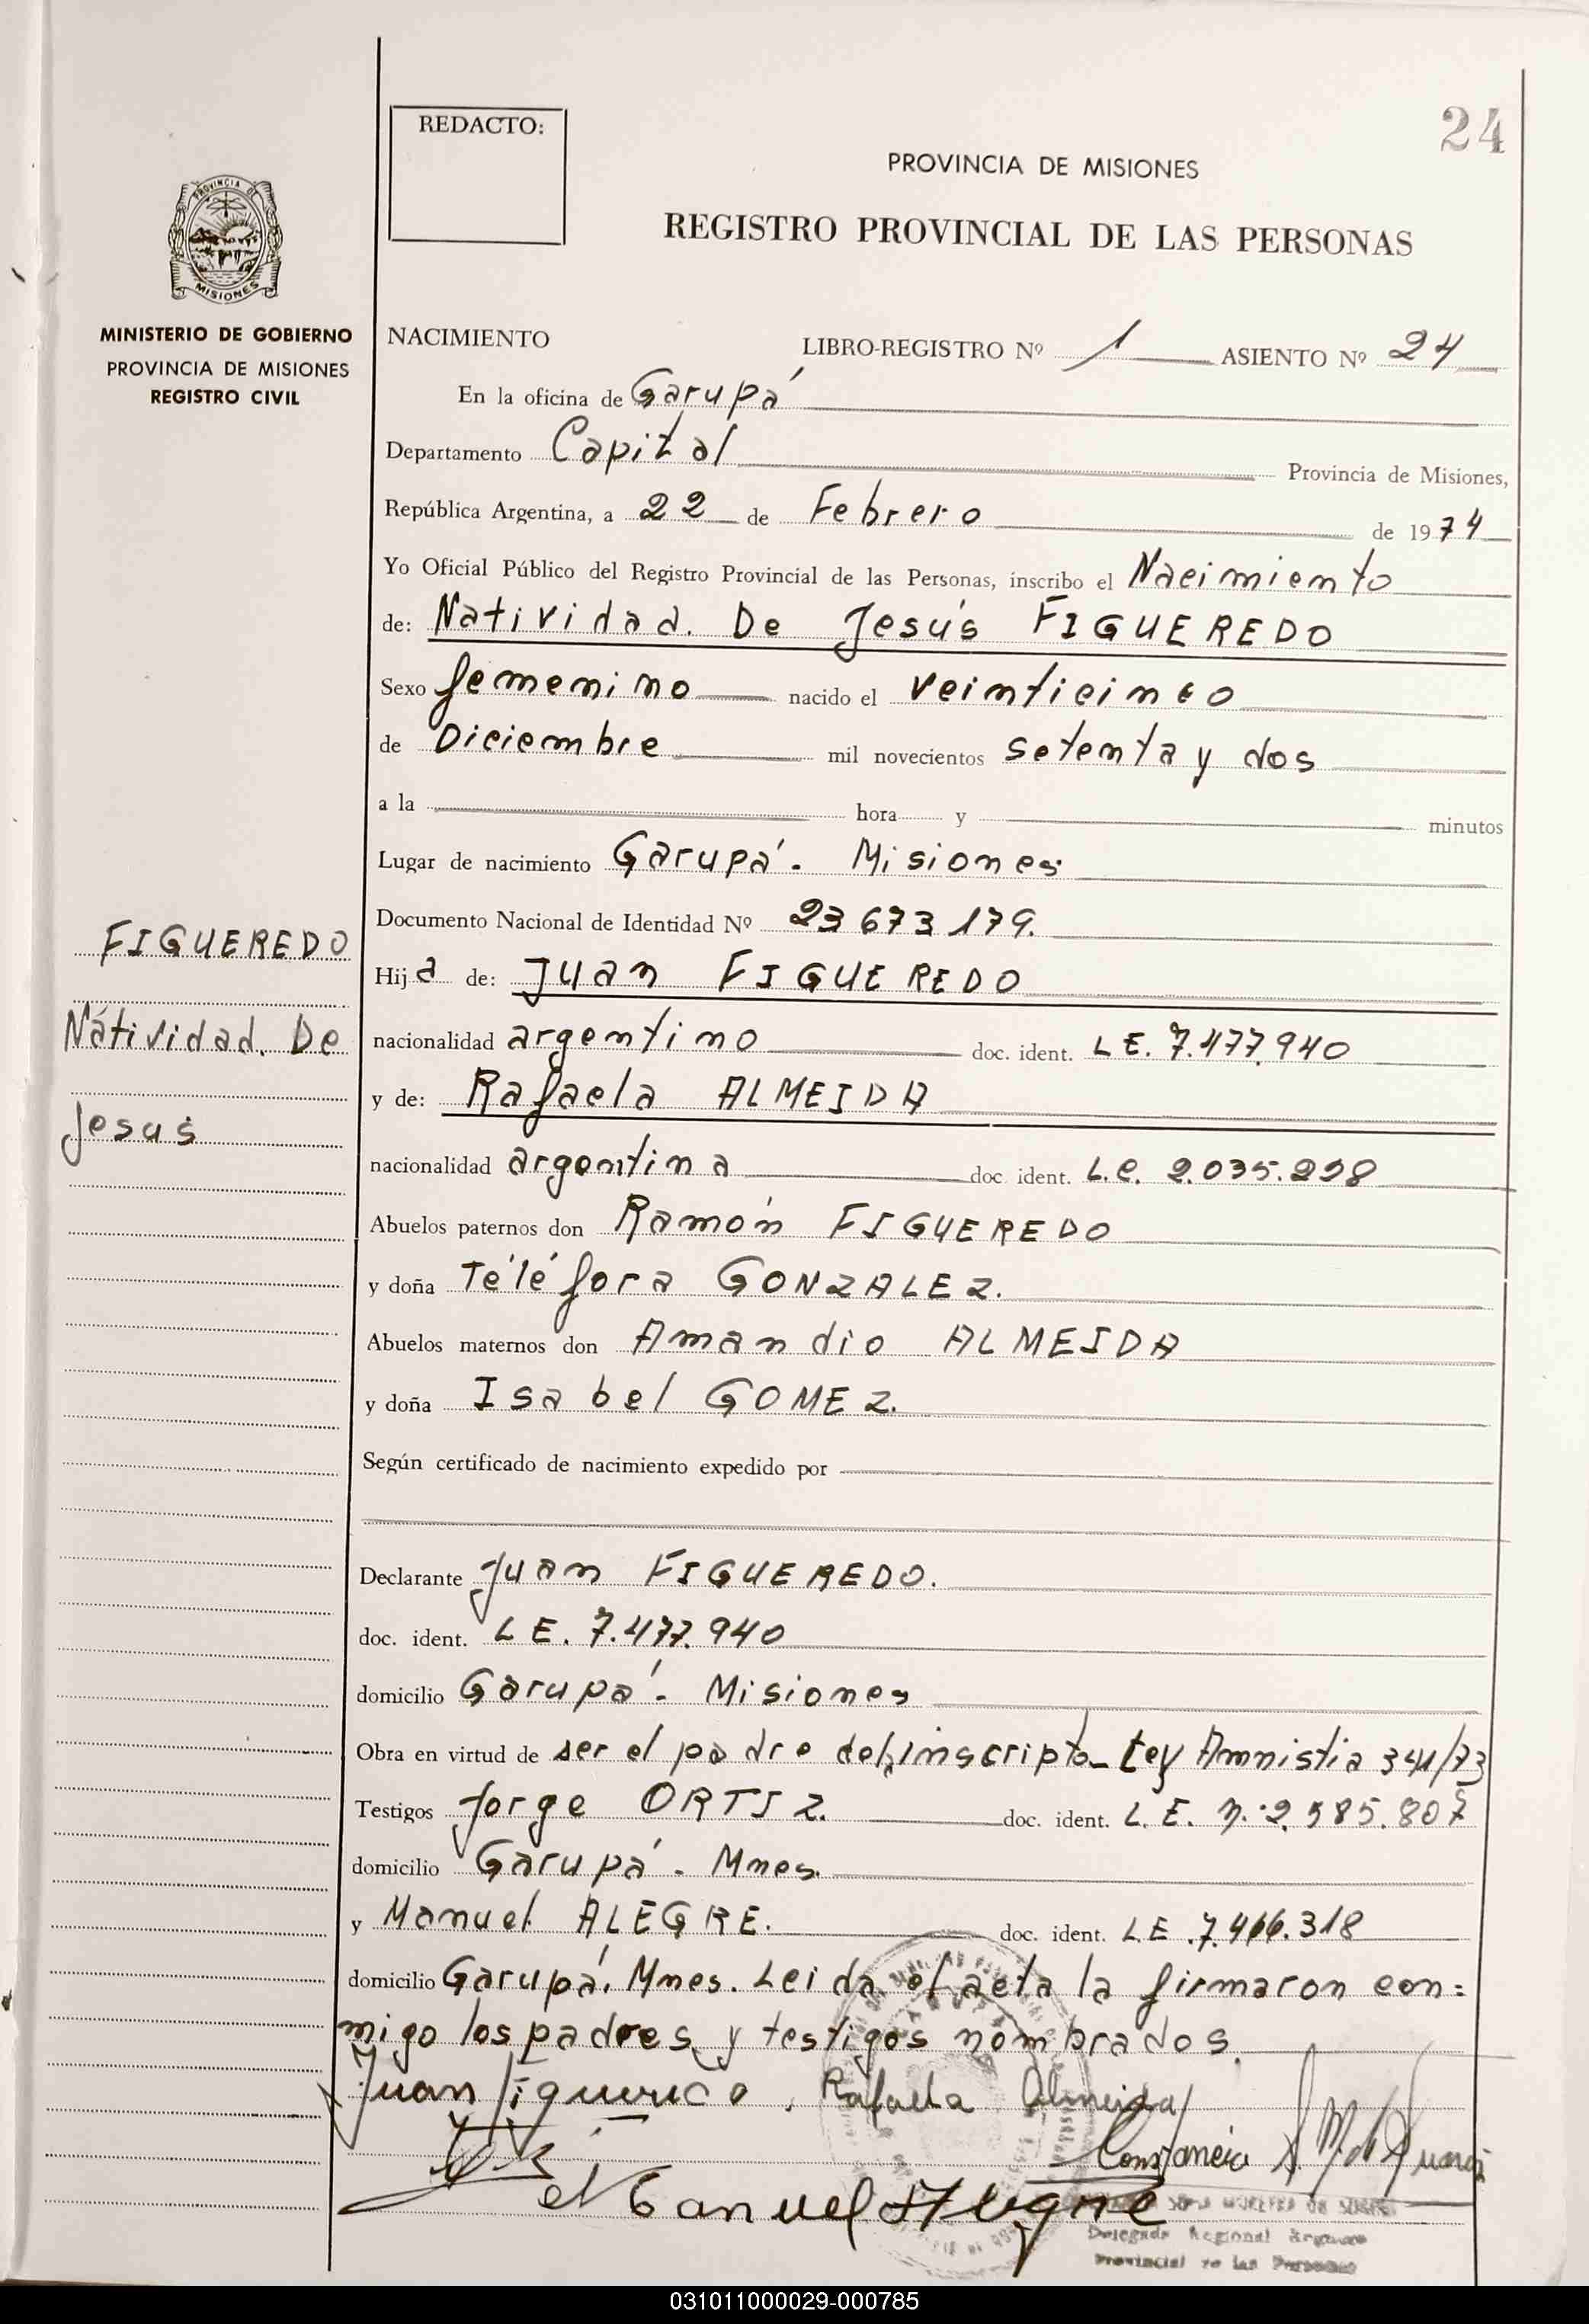 24
REDACTO:
PROVINCIA DE MISIONES
REGISTRO PROVINCIAL DE LAS PERSONAS
PROVINCIA DE
MISIONES
MINISTERIO DE GOBIERNO
PROVINCIA DE MISIONES
REGISTRO CIVIL
NACIMIENTO LIBRO-REGISTRO Nº 1 ASIENTO Nº 24
En la oficina de Garupá
Departamento Capital Provincia de Misiones,
República Argentina, a 22 de Febrero de 1974
Yo Oficial Público del Registro Provincial de las Personas, inscribo el Nacimiento
de: Natividad. De Jesús FIGUEREDO
Sexo femenino nacido el veinticinco
de Diciembre mil novecientos setenta y dos
a la hora y minutos
Lugar de nacimiento Garupá. Misiones
Documento Nacional de Identidad Nº 23 673 179.
FIGUEREDO
Natividad. De
Jesus
Hija de: Juan FIGUEREDO
nacionalidad argentino doc. ident. L E. 7.477.940
y de: Rafaela ALMEIDA
nacionalidad argentina doc. ident. L.C. 2.035.298
Abuelos paternos don Ramón FIGUEREDO
y doña Téléfora GONZALEZ.
Abuelos maternos don Amandio ALMEIDA
y doña Isabel GOMEZ.
Según certificado de nacimiento expedido por
Declarante Juan FIGUEREDO.
doc. ident. L E. 7.477.940
domicilio Garupá. Misiones
Obra en virtud de ser el padre del inscripto_ Ley Amnistia 341/73
Testigos Jorge ORTIZ. doc. ident. L. E.
domicilio Garupá. Mnes.
y Manuel ALEGRE. doc. ident. L.E. 7.466.318
domicilio Garupá. Mnes. Leida el acta la firmaron con=
migo los padres y testigos nombrados.
Juan Figueredo. Rafaela Almeida
Constancia
Manuel Alegre
Delegada Regional
Provincial de las Personas
031011000029-000785